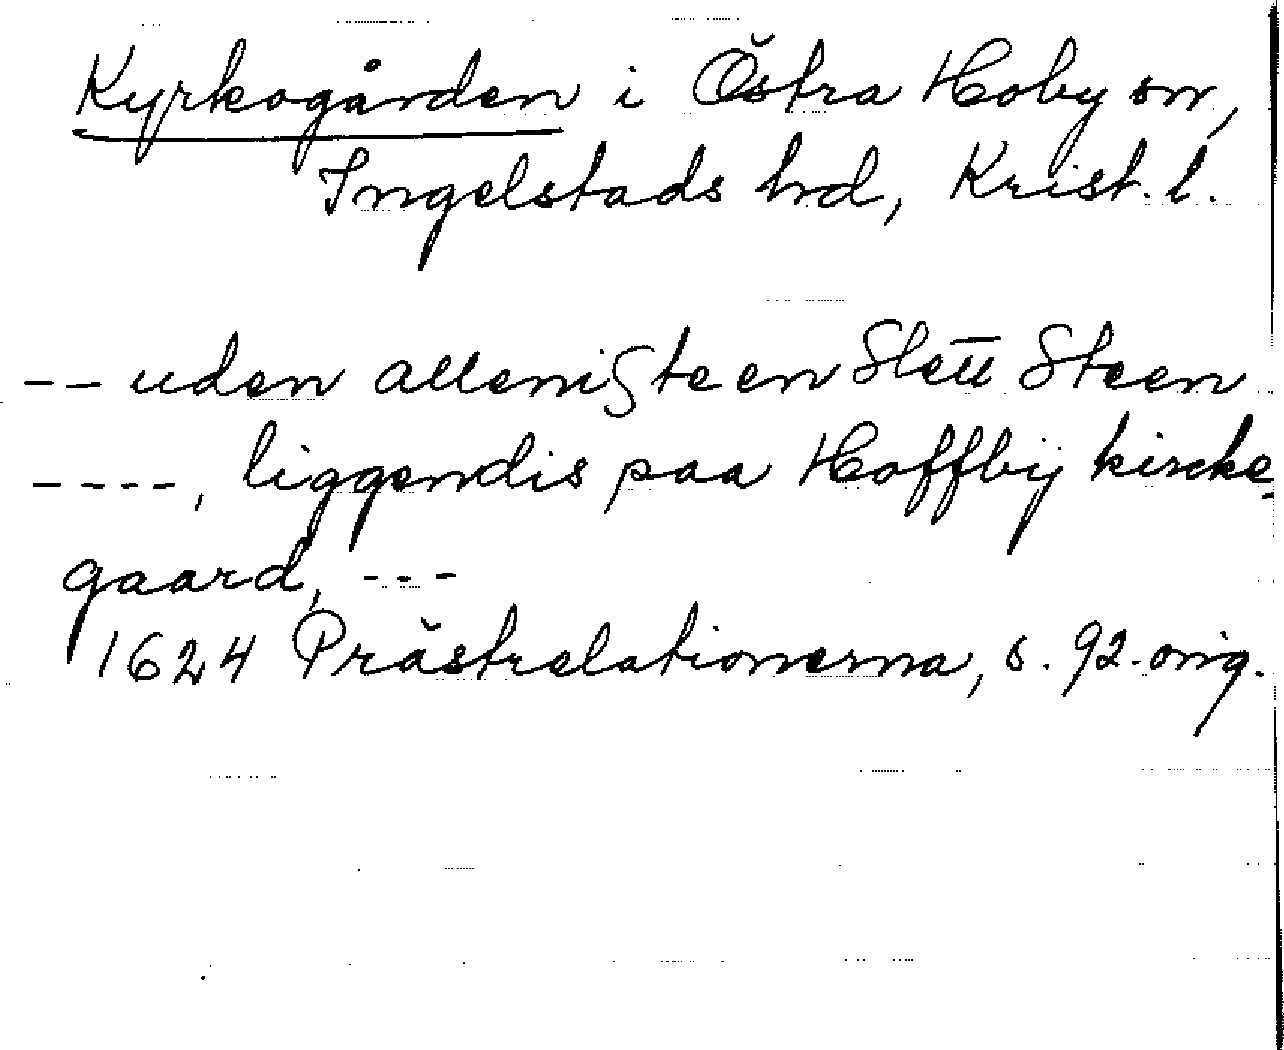 Kyrkogården i Östra Hoby sn,
Ingelstads hd, Krist. l.
-- uden alleniste en Slett Steen
----, liggendis paa Hoffbij kircke-
gaard, ---
1624 Prästrelationerna, s. 92. orig.